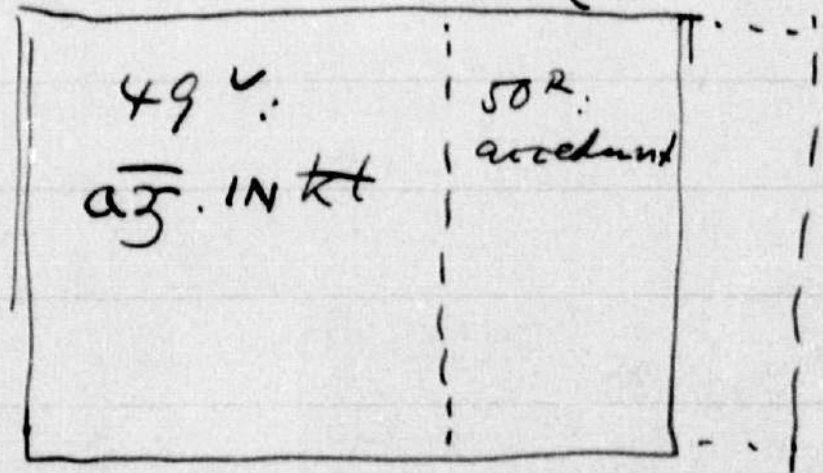 49 v:
aʒ̅. IN kł
50 R:
accedunt